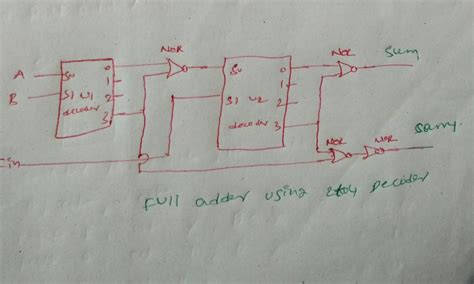 NOR
NOR
Sum
A
S0
0
1
B
S1
U1
2
decoder
3
S0
0
1
S1
U2
2
decoder
3
Cin
NOR
NOR
Sarry.
Full adder using 2to4 Decoder